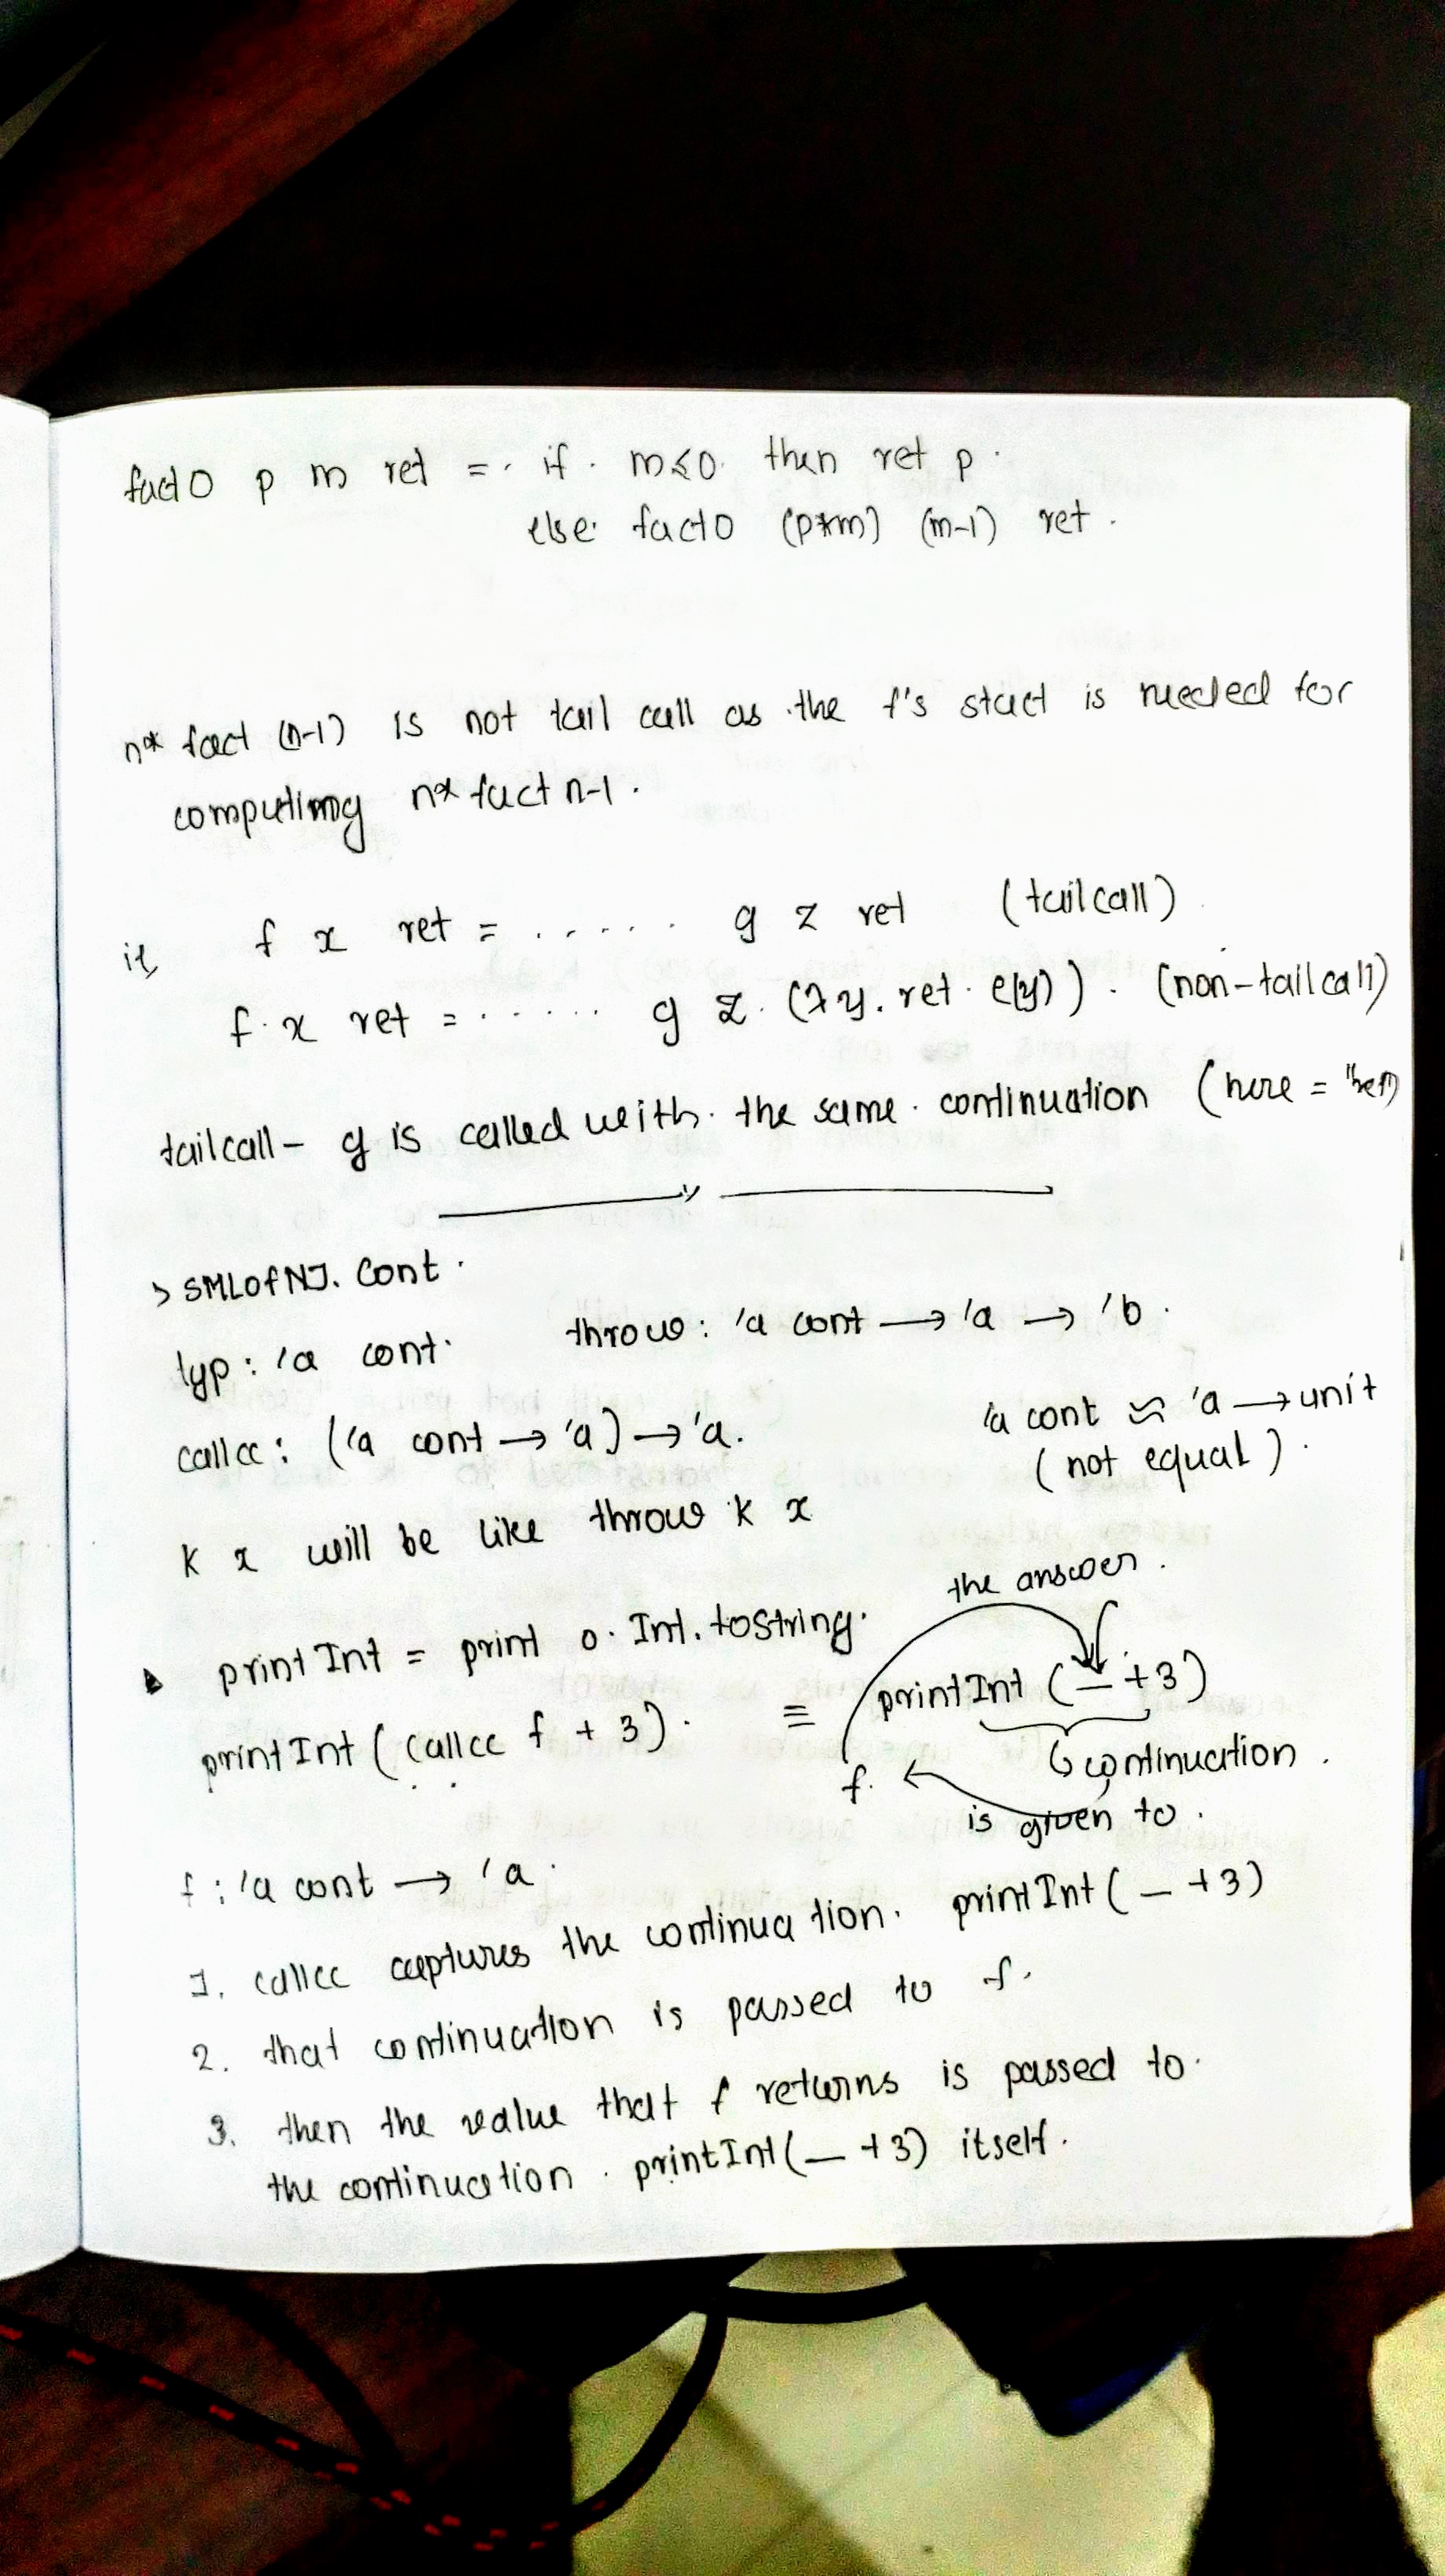 fact0 p m ret = if m≤0 then ret p.
else fact0 (p*m) (m-1) ret.
n* fact (n-1) is not tail call as the f's stact is needed for
computimg n* fact n-1.
f x ret = ..... g z ret (tailcall)
f x ret = ...... g z (λy. ret e(y)). (non-tailcall)
tailcall - g is called with the same continuation (here = "ret")
> SMLofNJ. Cont.
typ: 'a cont. throw: 'a cont → 'a → 'b.
callcc: ('a cont → 'a) → 'a. 'a cont ≈ 'a → unit
(not equal).
k x will be like throw k x
the answer.
printInt = print o Int.toString.
printInt (callcc f + 3). ≡ printInt (_ + 3)
continuation.
f. is given to.
f: 'a cont → 'a.
1. callcc captures the continuation. printInt (_ + 3)
2. that continuation is passed to f.
3. then the value that f returns is passed to
the continuation. printInt (_ + 3) itself.